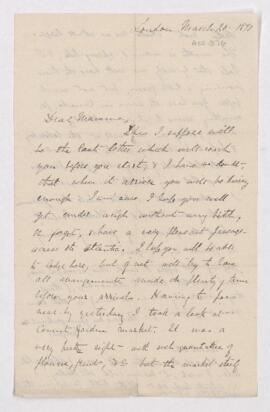 London March 20. 1890
Dear Mamma,
This I suppose will
be the last letter which will reach
you before you start, & I have no doubt
that when it arrives you will be busy
enough. I am sure I hope you will
get under weigh without any
& have a very pleasant passage
across the Atlantic. I hope you will be able
to lodge here, but if not will try to have
all arrangements made in plenty of time
before your arrival. Having to pass
near by yesterday I took a look at
Covent Garden market. It was a
very pretty sight with such quantities of
flowers, fruits, &c but the market itself